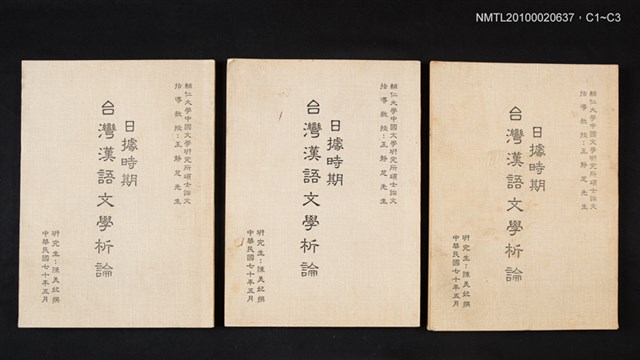 NMTL20100020637，C1~C3
輔仁大學中國文學研究所碩士論文
指導教授：王靜芝先生
日據時期
台灣漢語文學析論
研究生：陳美妃撰
中華民國七十年五月
輔仁大學中國文學研究所碩士論文
指導教授：王靜芝先生
日據時期
台灣漢語文學析論
研究生：陳美妃撰
中華民國七十年五月
輔仁大學中國文學研究所碩士論文
指導教授：王靜芝先生
日據時期
台灣漢語文學析論
研究生：陳美妃撰
中華民國七十年五月